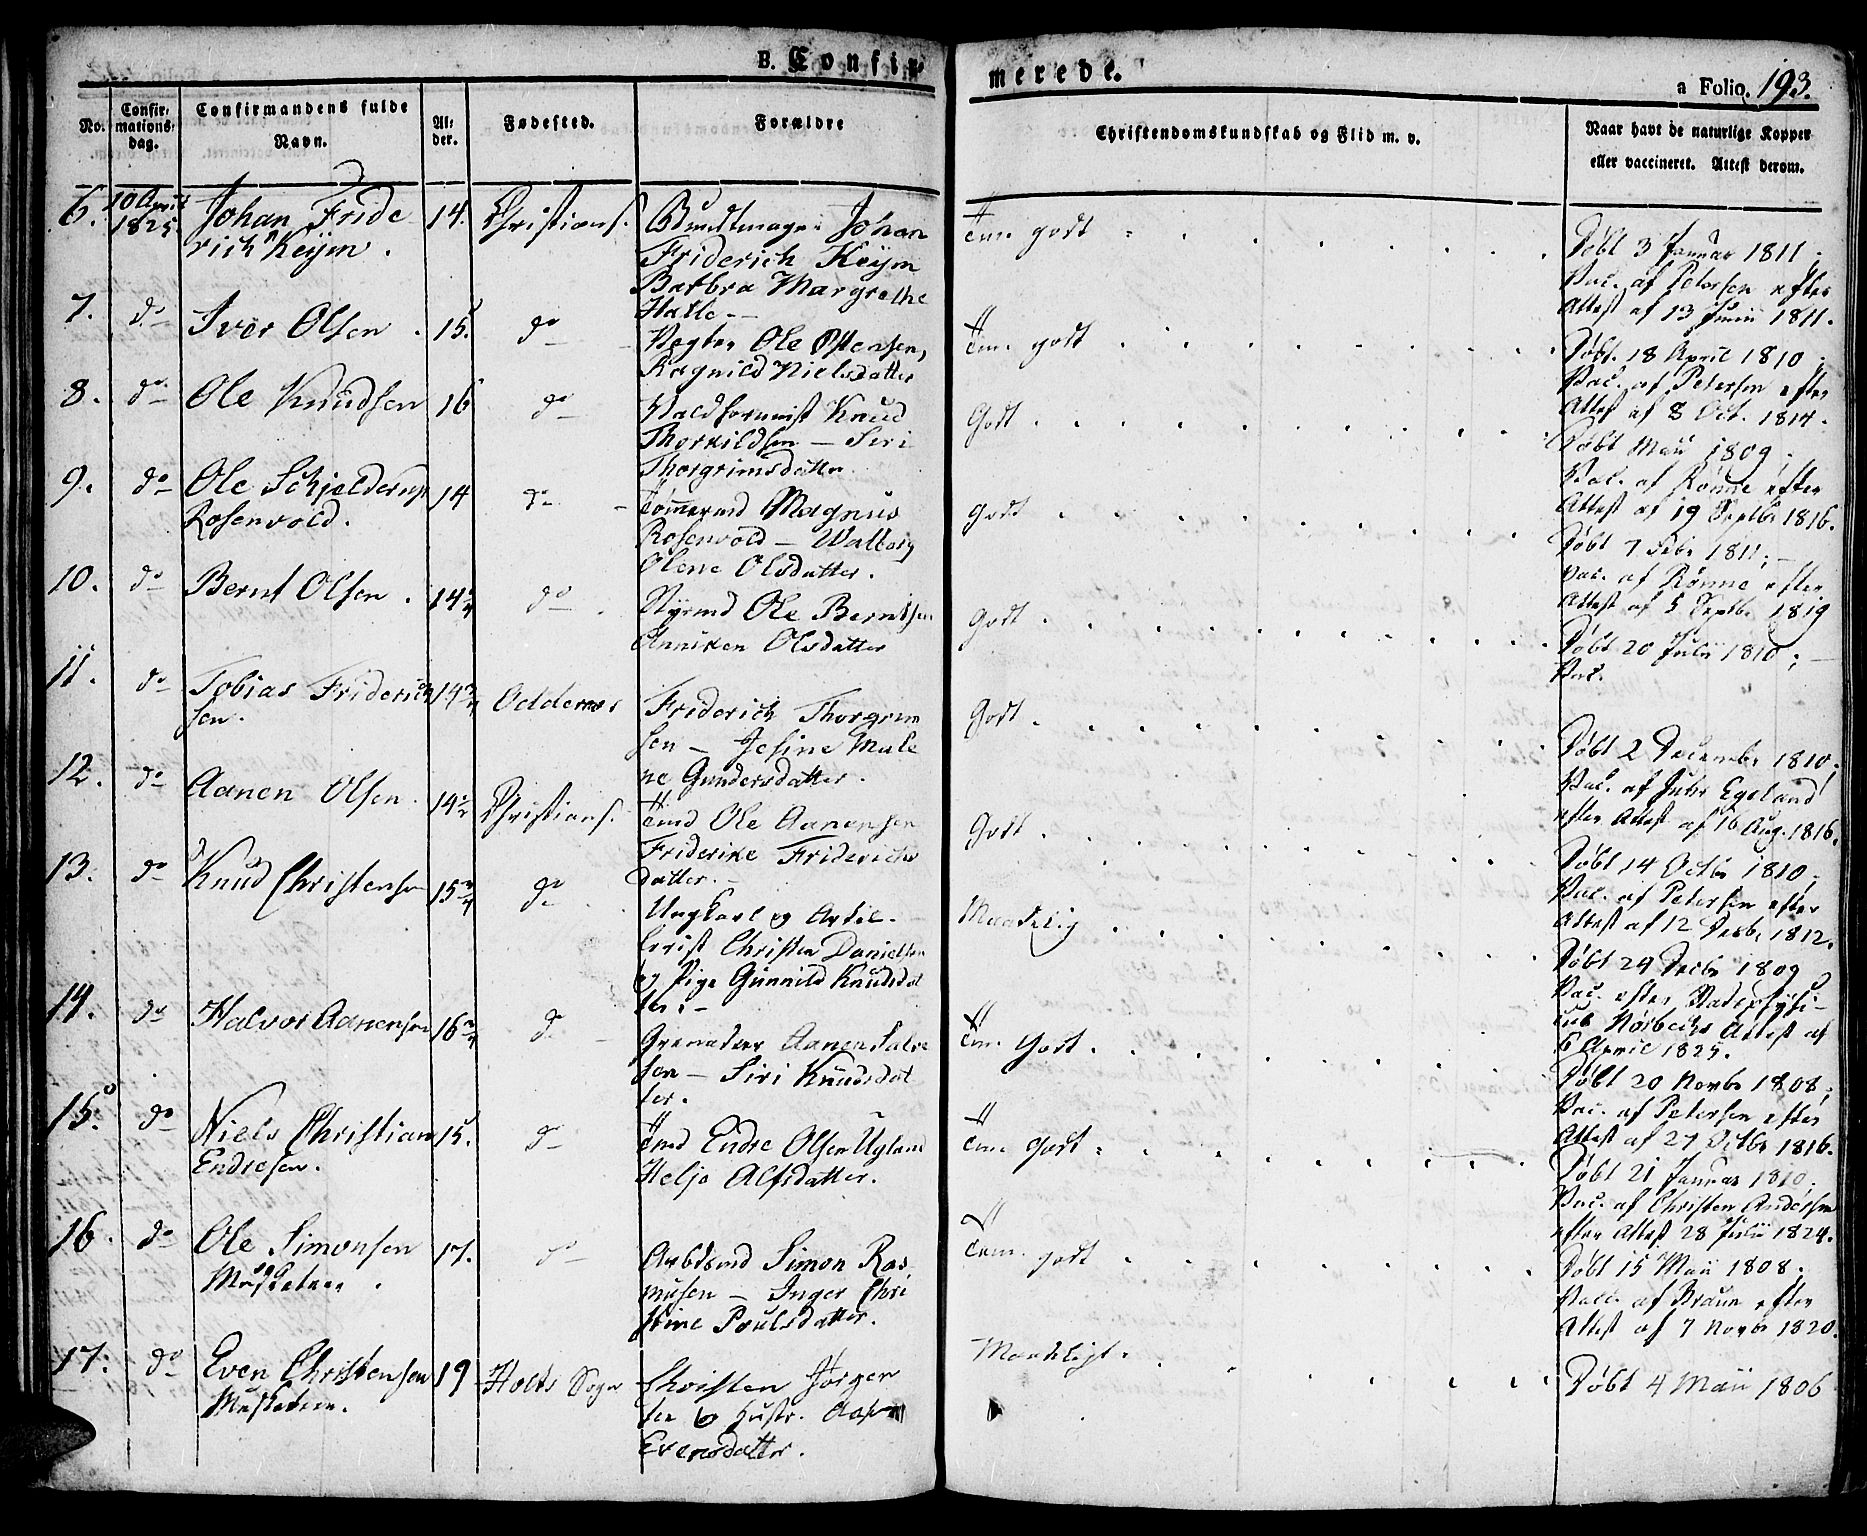 B. Confirmerede.
a Folio 193.
No.
Confirmations-dag.
Confirmandens fulde Navn.
Alder.
Fødested.
Forældre
Christendomskundskab og Flid m. v.
Naar havt de naturlige Kopper eller vaccineret. Attest derom.
6. 10 April 1825. Johan Friderich Keijm. 14. Christians.
Bundtmager Johan
Friderich Keijm
Barbra Margrethe
Halle.
Tem. godt
Døbt 3 Januar 1811;
Vac. af Petersen efter
Attest af 13 Junii 1811.
7. do Iver Olsen. 15. do
Vægter Ole Ostensen,
Ragnild Nielsdatter
Tem. godt
Døbt. 18 April 1810;
Vac. af Petersen efter
Attest af 8 Oct. 1814.
8. do Ole Knudsen 16 do
Knud
Thorkildsen - Siri
Thorgrimsdatter
Godt
Døbt Maii 1809;
Vac. af Rønne efter
Attest af 19 Septbr 1816.
9. do Ole Schjelderup
Rosenvold. 14 do
Tømermd Magnus
Rosenvold - Walborg
Olene Olsdatter.
godt
Døbt 7 Febr 1811;
Vac. af Rønne efter
Attest af 5 Septbr 1819
10. do Bernt Olsen. 14 3/4 do
Styrmd Ole Berntsen
Anniken Olsdatter
godt
Døbt 20 Julii 1810;
Vac.
11. do Tobias Friderichsen. 14 3/4 Oddernes
Friderich Thorgrimsen - Jesine Malene Gundersdatter.
Godt
Døbt 2 Decembr 1810;
Vac. af Egeland
efter Attest af 16 Aug. 1816.
12. do Aanen Olsen. 14 1/2 Christians.
Tmd Ole Aanensen
Friderike Friderichsdatter.
Godt
Døbt 14 Octbr 1810;
Vac. af Petersen efter
Attest af 12 Decbr 1812.
13. do Knud Christensen 15 3/4 do
Ungkarl og Artillerist Christen Danielsen
og Pige Gunnild Knudsdatter.
Maadelig
Døbt 24 Decbr 1809
Vac. efter Stadsphysicus Norbechs Attest af
6 April 1825.
14. do Halvor Aanensen 16 3/4 do
Grenadeer Aanen Salvesen - Siri Knudsdatter.
Tem. Godt.
Døbt 20 Novbr 1808;
Vac. af Petersen efter
Attest af 27 Octbr 1816.
15. do Niels Christian
Endresen. 15. do
Tmd Endre Olsen Ugland
Helje Alfsdatter.
Tem. Godt
Døbt 21 Januar 1810.
Vac. af Christen Andersen
efter Attest 28 Julii 1824.
16. do Ole Simonsen
Musketeer. 17. do
Arbdsmd Simon Rasmusen - Inger Christine Poulsdatter.
Tem. godt
Døbt 15 Maii 1808.
Vacc. af Braun efter
Attest af 7 Novbr 1820.
17. do Even Christensen
Musketeer. 19 Holts Sogn
Christen Jørgensen & Hustr.
Evensdatter.
Maadeligt.
Døbt 4 Maii 1806